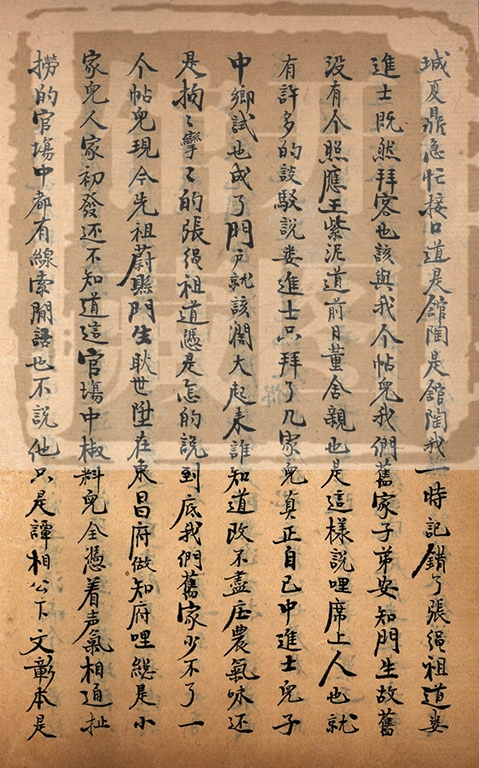 城夏鼎急忙接口道是舘陶是舘陶我一時記錯了張繩祖道婁
進士既然拜客也該與我个帖兒我們舊家子弟安知門生故舊
没有个照應王紫泥道前日董舍親也是這樣說哩席上人也就
有許多的談駁說婁進士只拜了几家兒真正自己中進士兒子
中鄉試也成了門户就該濶大起来誰知道改不盡庄農氣味还
是拘〻孿〻的張繩祖道憑是怎的說到底我們舊家少不了一
个帖兒現今先祖蔚縣門生耿世陞在東昌府做知府哩總是小
家兒人家初發还不知道這官塲中椒料兒全憑着声氣相通扯
撈的官塲中都有線索閒話也不說他只是譚相公下文彰本是